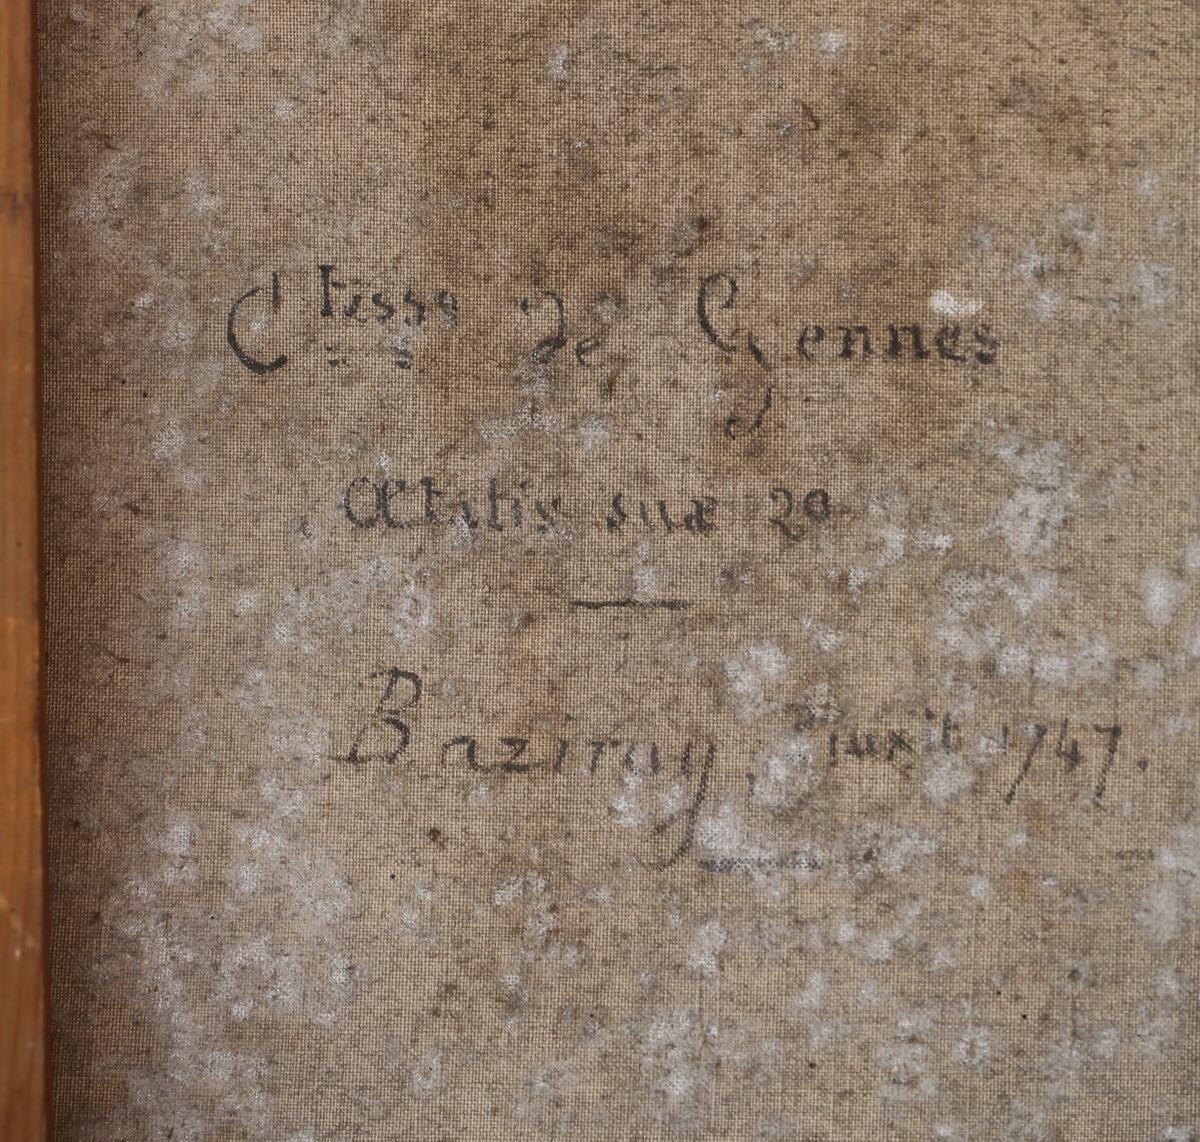 Ctesse de Gennes
Ætatis suæ 20
Baziray, Pinxit 1747.